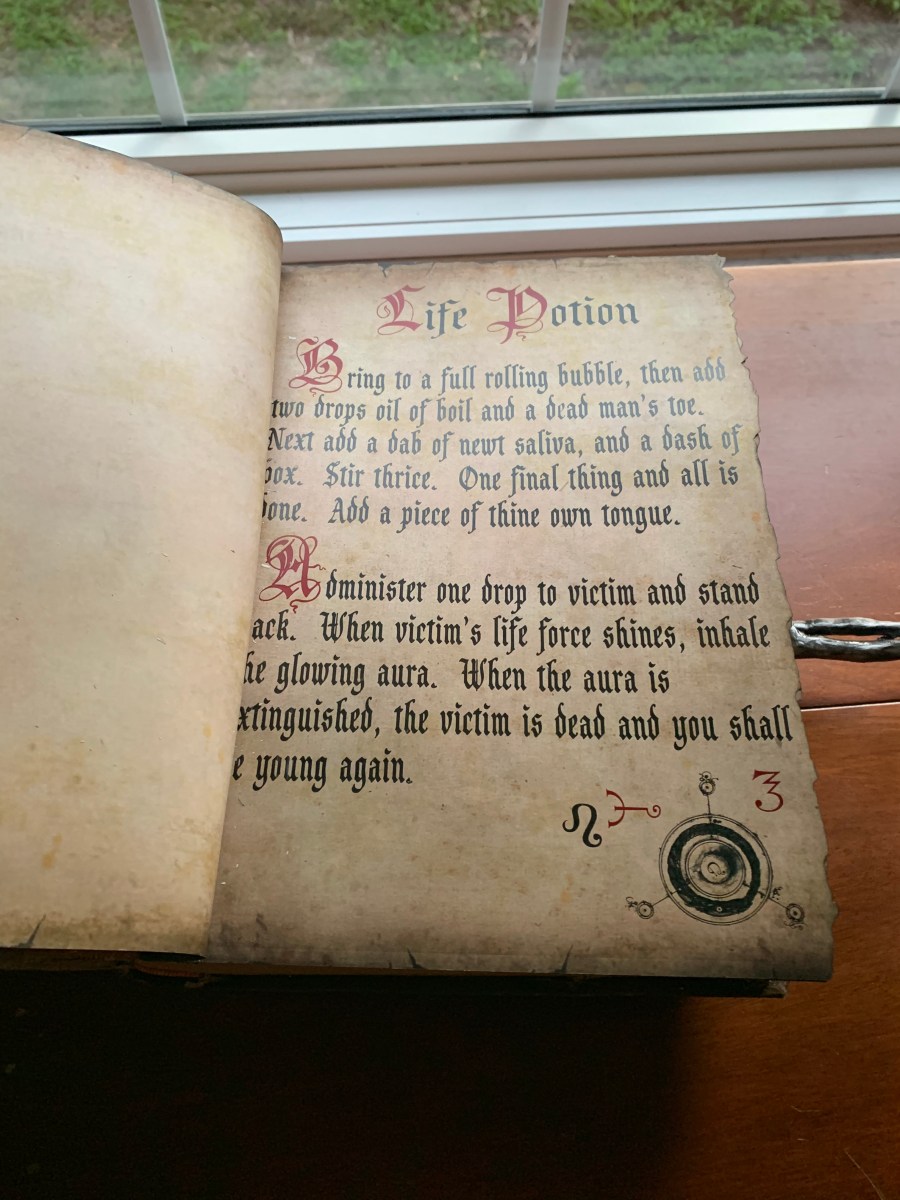 Life Potion
Bring to a full rolling bubble, then add
two drops oil of boil and a dead man's toe.
Next add a dab of newt saliva, and a dash of
pox. Stir thrice. One final thing and all is
done. Add a piece of thine own tongue.
Administer one drop to victim and stand
back. When victim's life force shines, inhale
the glowing aura. When the aura is
extinguished, the victim is dead and you shall
be young again.
3